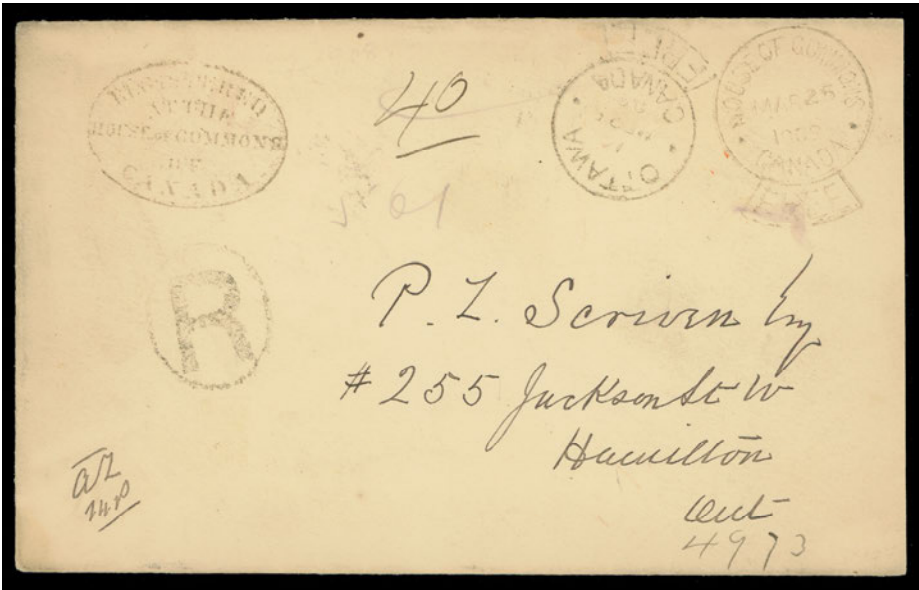 REGISTERED
AT THE
HOUSE OF COMMONS
OF
CANADA
40
FREE
OTTAWA
CANADA
HOUSE OF COMMONS
MAR 25
CANADA
FREE
R
P. L. Scriven Esq
# 255 Jackson St W
Hamilton
Ont
4973